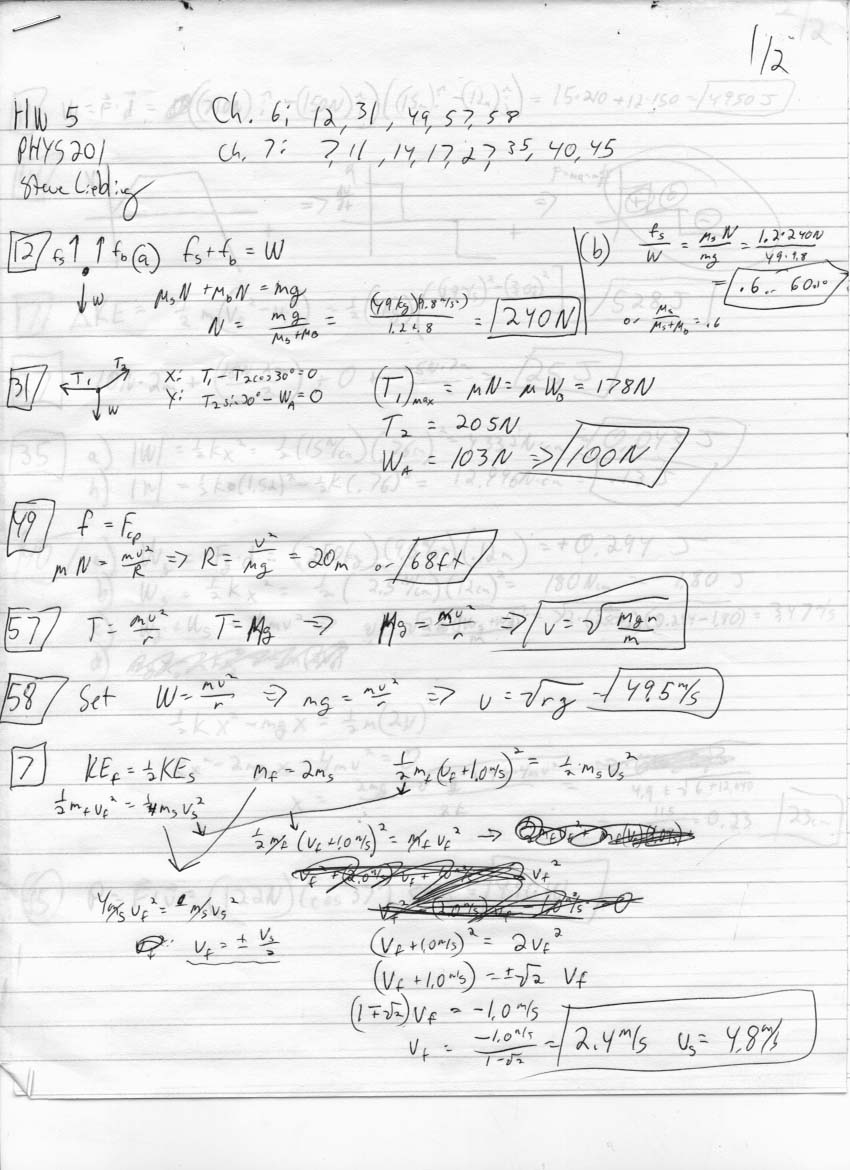 1/2
HW 5 Ch. 6: 12, 31, 49, 57, 58
PHYS 201 Ch. 7: 7, 11, 14, 17, 27, 35, 40, 45
Steve Liebling
12 fs fb (a) fs + fb = W
W
μsN + μbN = mg
N = mg/(μs+μb) = (49kg)(9.8m/s²)/(1.2+.8) = 240N
(b) fs/W = μsN/mg = 1.2·240N/49·9.8
= .6 or 60%
or μs/(μs+μb) = .6
31 T1 T2 W
x: T1 - T2cos30° = 0
y: T2sin30° - WA = 0
(T1)max = μN = μWB = 178N
T2 = 205N
WA = 103N ⇒ 100N
49 f = Fcp
μN = mv²/R ⇒ R = v²/mg = 20m or 68ft
57 T = mv²/r T = Mg ⇒ Mg = mv²/r ⇒ v = √(Mgr/m)
58 Set W = mv²/r ⇒ mg = mv²/r ⇒ v = √rg = 49.5m/s
7 KEf = ½KEs mf = 2ms ½mf(vf+1.0m/s)² = ½msvs²
½mfvf² = ¼msvs²
½mf(vf+1.0m/s)² = mfvf² →
4msvf² = msvs²
vf = ± vs/2
(vf+1.0m/s)² = 2vf²
(vf+1.0m/s) = ±√2 vf
(1∓√2)vf = -1.0m/s
vf = -1.0m/s/(1-√2) = 2.4m/s vs = 4.8m/s